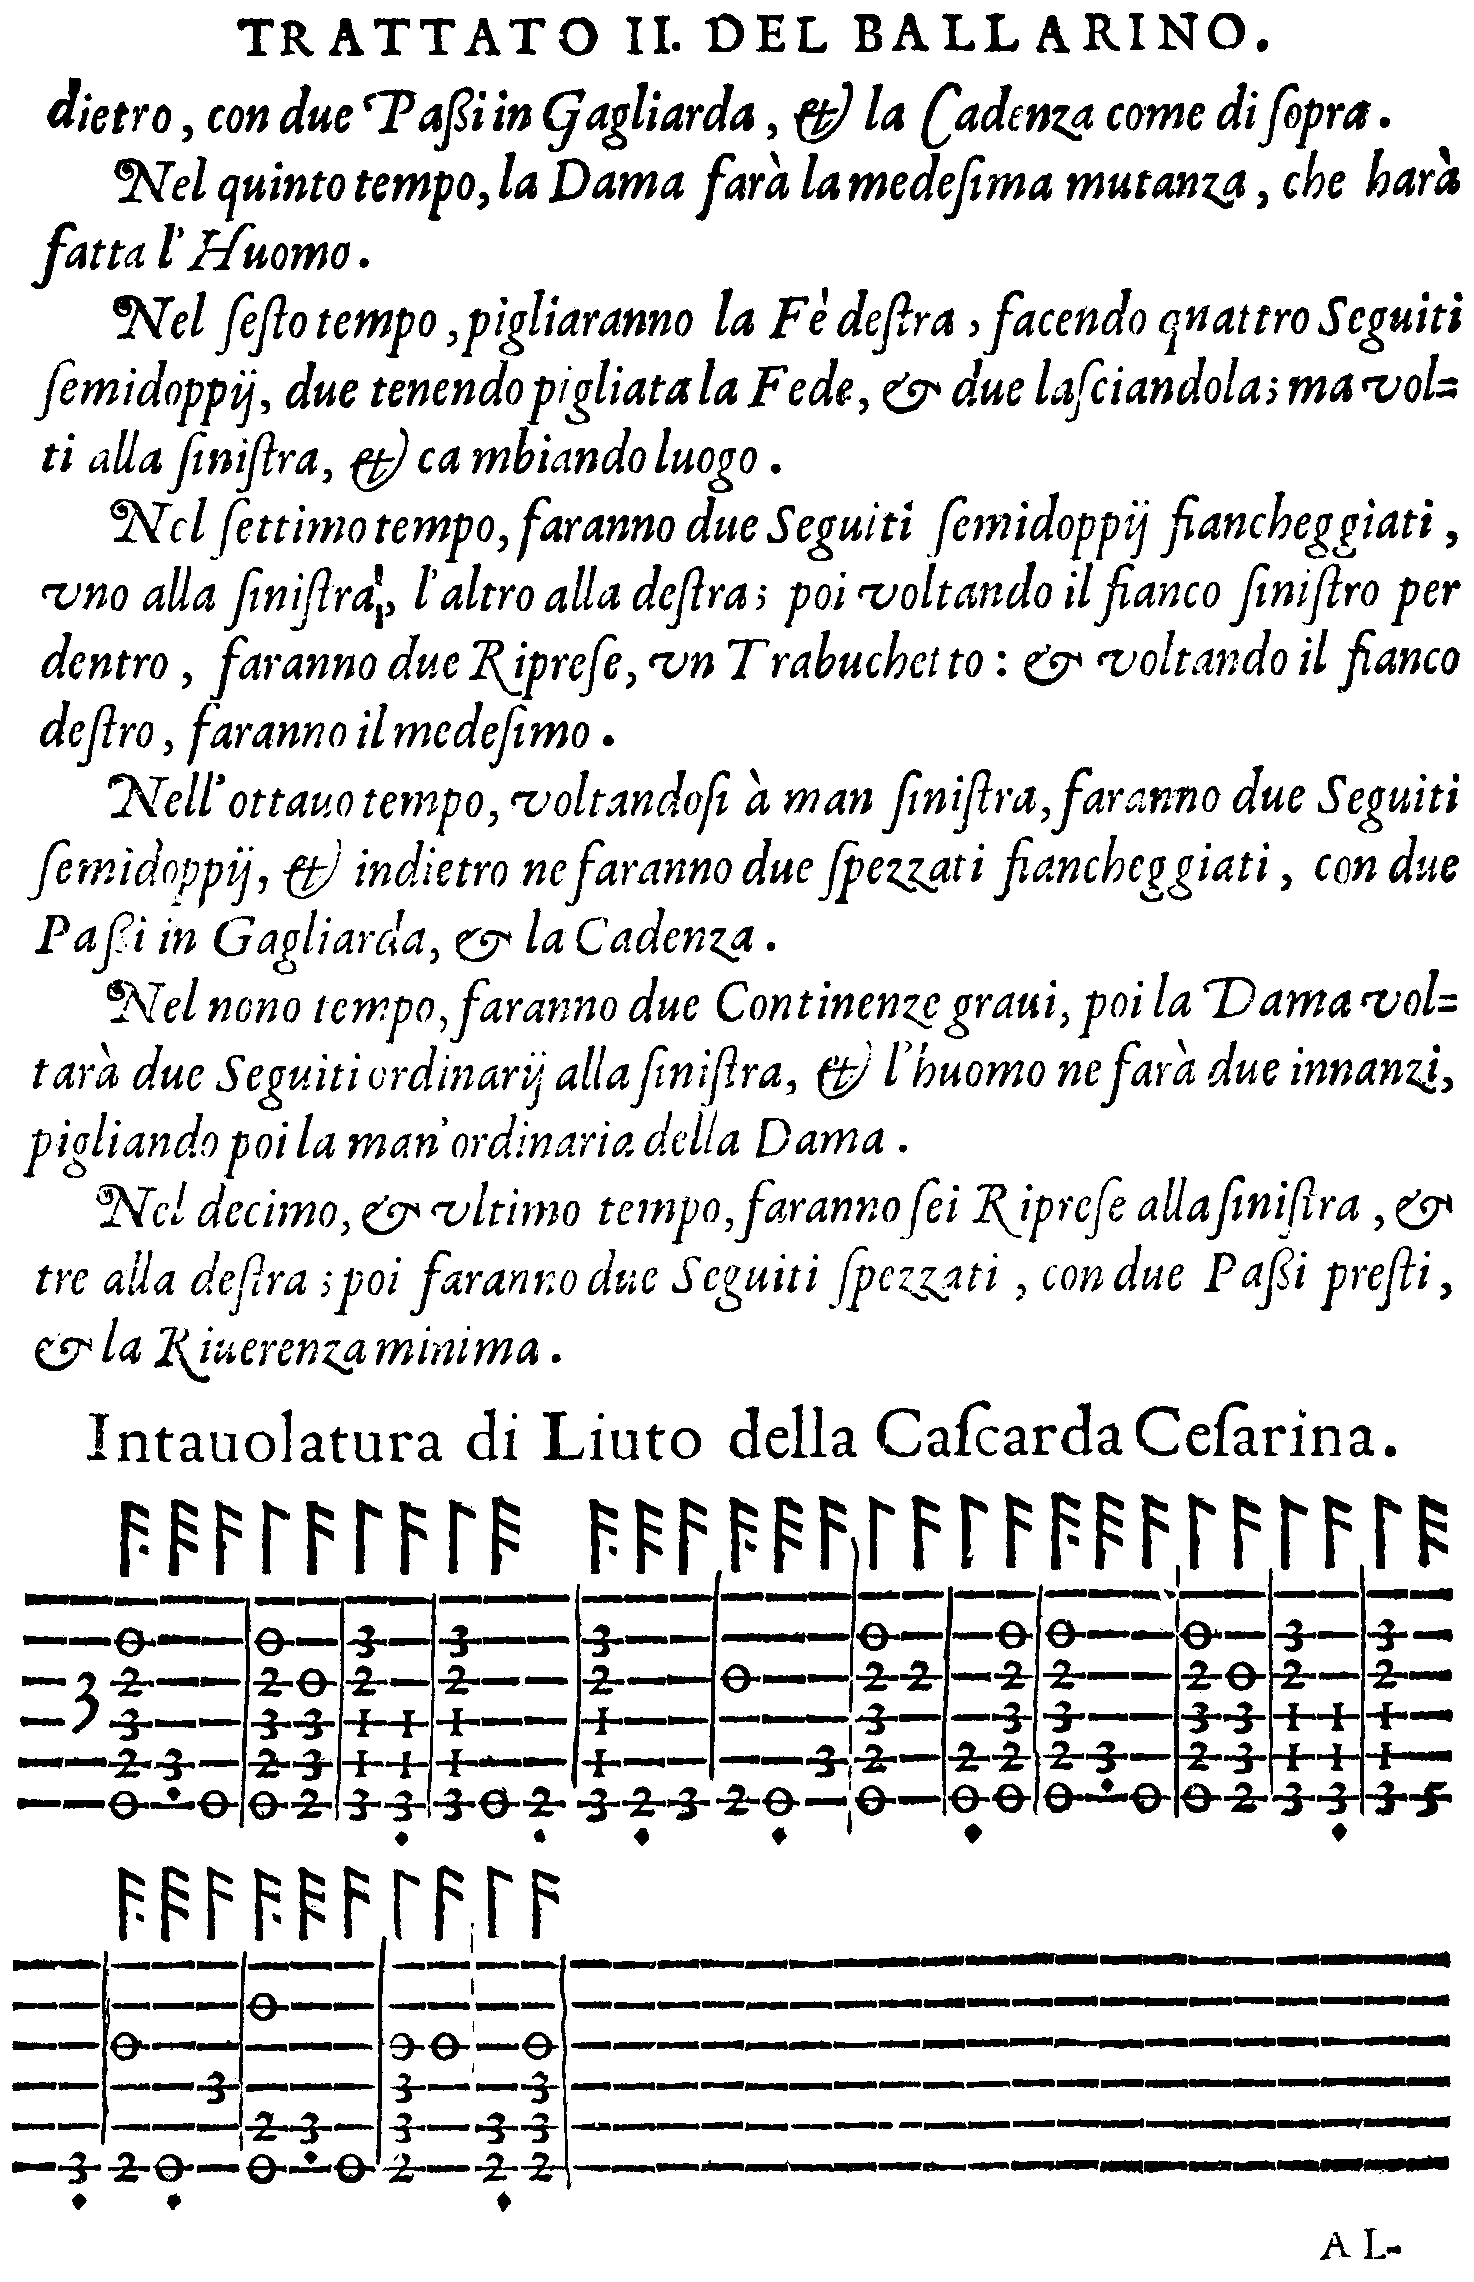 TRATTATO II. DEL BALLARINO.
dietro, con due Paſſi in Gagliarda, & la Cadenza come di ſopra.
Nel quinto tempo, la Dama farà la medeſima mutanza, che harà
fatta l'Huomo.
Nel ſeſto tempo, pigliaranno la Fè deſtra, facendo quattro Seguiti
ſemidoppij, due tenendo pigliata la Fede, & due laſciandola; ma vol=
ti alla ſiniſtra, & cambiando luogo.
Nel ſettimo tempo, faranno due Seguiti ſemidoppij fiancheggiati,
vno alla ſiniſtra, l'altro alla deſtra; poi voltando il fianco ſiniſtro per
dentro, faranno due Ripreſe, vn Trabuchetto: & voltando il fianco
deſtro, faranno il medeſimo.
Nell'ottauo tempo, voltandoſi à man ſiniſtra, faranno due Seguiti
ſemidoppij, & indietro ne faranno due ſpezzati fiancheggiati, con due
Paſſi in Gagliarda, & la Cadenza.
Nel nono tempo, faranno due Continenze graui, poi la Dama vol=
tarà due Seguiti ordinarij alla ſiniſtra, & l'huomo ne farà due innanzi,
pigliando poi la man'ordinaria della Dama.
Nel decimo, & vltimo tempo, faranno ſei Ripreſe alla ſiniſtra, &
tre alla deſtra; poi faranno due Seguiti ſpezzati, con due Paſſi preſti,
& la Riuerenza minima.
Intauolatura di Liuto della Caſcarda Ceſarina.
3
0 0 3 3 3 0 0 0 0 3 3
2 2 0 2 2 2 0 2 2 2 2 2 0 2 2
3 3 3 1 1 1 1 3 3 3 3 3 1 1 1
2 3 2 3 1 1 1 1 3 2 2 2 2 3 2 3 1 1 1
0 0 0 2 3 3 3 0 2 3 2 3 2 0 0 0 0 0 0 0 2 3 3 3 5
0
0 3 0 0
3 3 3
2 3 3 3 3
3 2 0 0 0 2 2 2
AL-